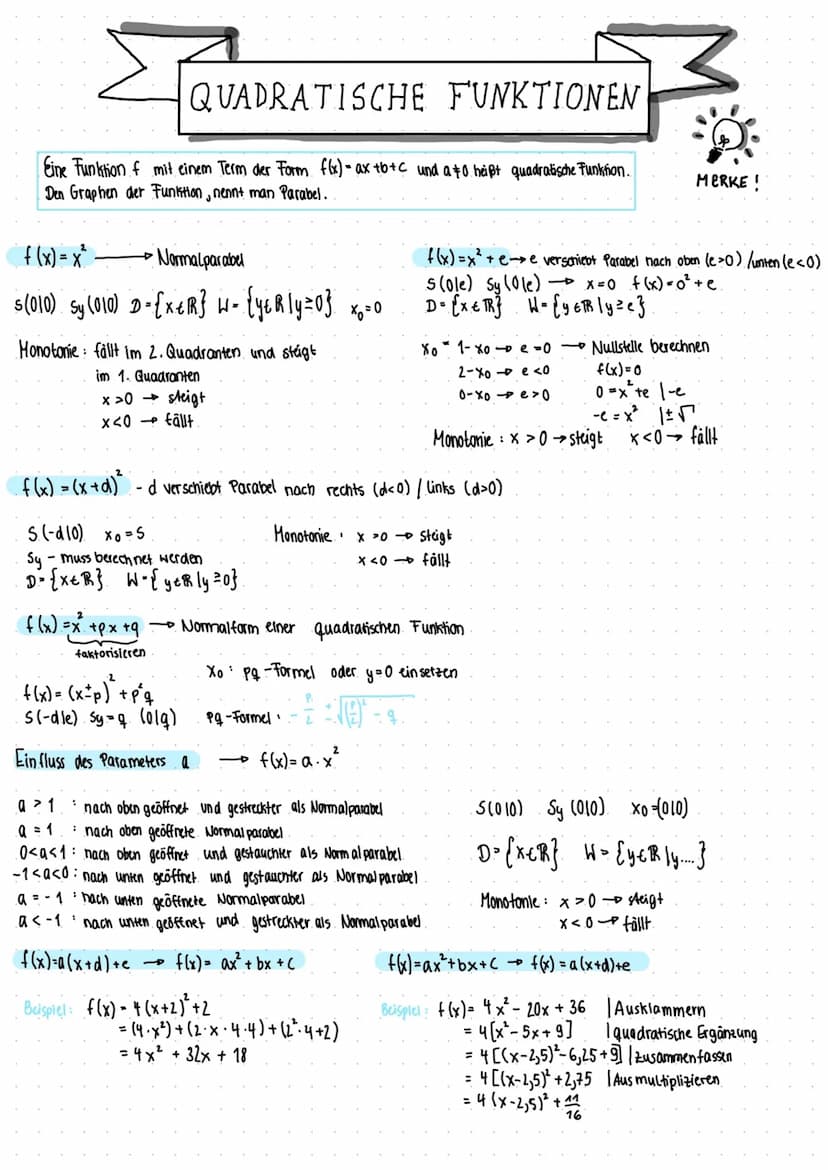 QUADRATISCHE FUNKTIONEN
Eine Funktion f mit einem Term der Form f(x) = ax+b+c und a≠0 heißt quadratische Funktion.
Den Graphen der Funktion, nennt man Parabel.
MERKE!
f(x) = x² → Normalparabel
S(0|0) Sy(0|0) D={x∈ℝ} W={y∈ℝ|y≥0} x₀=0
Monotonie: fällt im 2. Quadranten und steigt
im 1. Quadranten
x>0 → steigt
x<0 → fällt
f(x)=x²+e → e verschiebt Parabel nach oben (e>0) / unten (e<0)
S(0|e) Sy(0|e) → x=0 f(x)=0²+e
D={x∈ℝ} W={y∈ℝ|y≥e}
x₀ = 1-x₀ → e=0 → Nullstelle berechnen
2-x₀ → e<0 f(x)=0
0-x₀ → e>0 0=x²+e |-e
-e=x² |±√
Monotonie: x>0 → steigt x<0 → fällt
f(x)=(x+d)² - d verschiebt Parabel nach rechts (d<0) / links (d>0)
S(-d|0) x₀=S
Sy - muss berechnet werden
D={x∈ℝ} W={y∈ℝ|y≥0}
Monotonie: x>0 → steigt
x<0 → fällt
f(x)=x²+px+q → Normalform einer quadratischen Funktion
faktorisieren
x₀: pq-Formel oder y=0 einsetzen
f(x)=(x±p)²+p²q
S(-d|e) Sy=q (0|q) pq-Formel: -p/2 ± √((p/2)² - q)
Einfluss des Parameters a → f(x)=a·x²
a>1 : nach oben geöffnet und gestreckter als Normalparabel
a=1 : nach oben geöffnete Normalparabel
0<a<1: nach oben geöffnet und gestauchter als Normalparabel
-1<a<0: nach unten geöffnet und gestauchter als Normalparabel
a=-1 : nach unten geöffnete Normalparabel
a<-1 : nach unten geöffnet und gestreckter als Normalparabel
S(0|0) Sy(0|0) x₀=(0|0)
D={x∈ℝ} W={y∈ℝ|y....}
Monotonie: x>0 → steigt
x<0 → fällt
f(x)=a(x+d)+e → f(x)=ax²+bx+c
Beispiel: f(x)=4(x+2)²+2
=(4·x²)+(2·x·4·4)+(2²·4+2)
=4x²+32x+18
f(x)=ax²+bx+c → f(x)=a(x+d)+e
Beispiel: f(x)=4x²-20x+36 |Ausklammern
=4[x²-5x+9] |quadratische Ergänzung
=4[(x-2,5)²-6,25+9] |zusammenfassen
=4[(x-2,5)²+2,75 |Ausmultiplizieren
=4(x-2,5)²+11/16